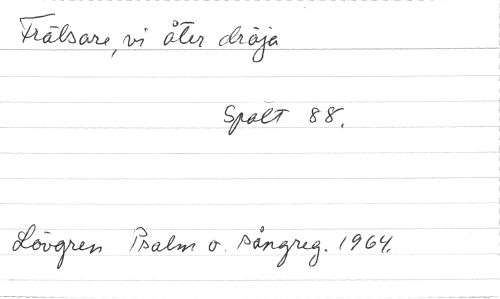 Frälsare, vi åter dröja
Spalt 88.
Lövgren Psalm o. sångreg. 1964.